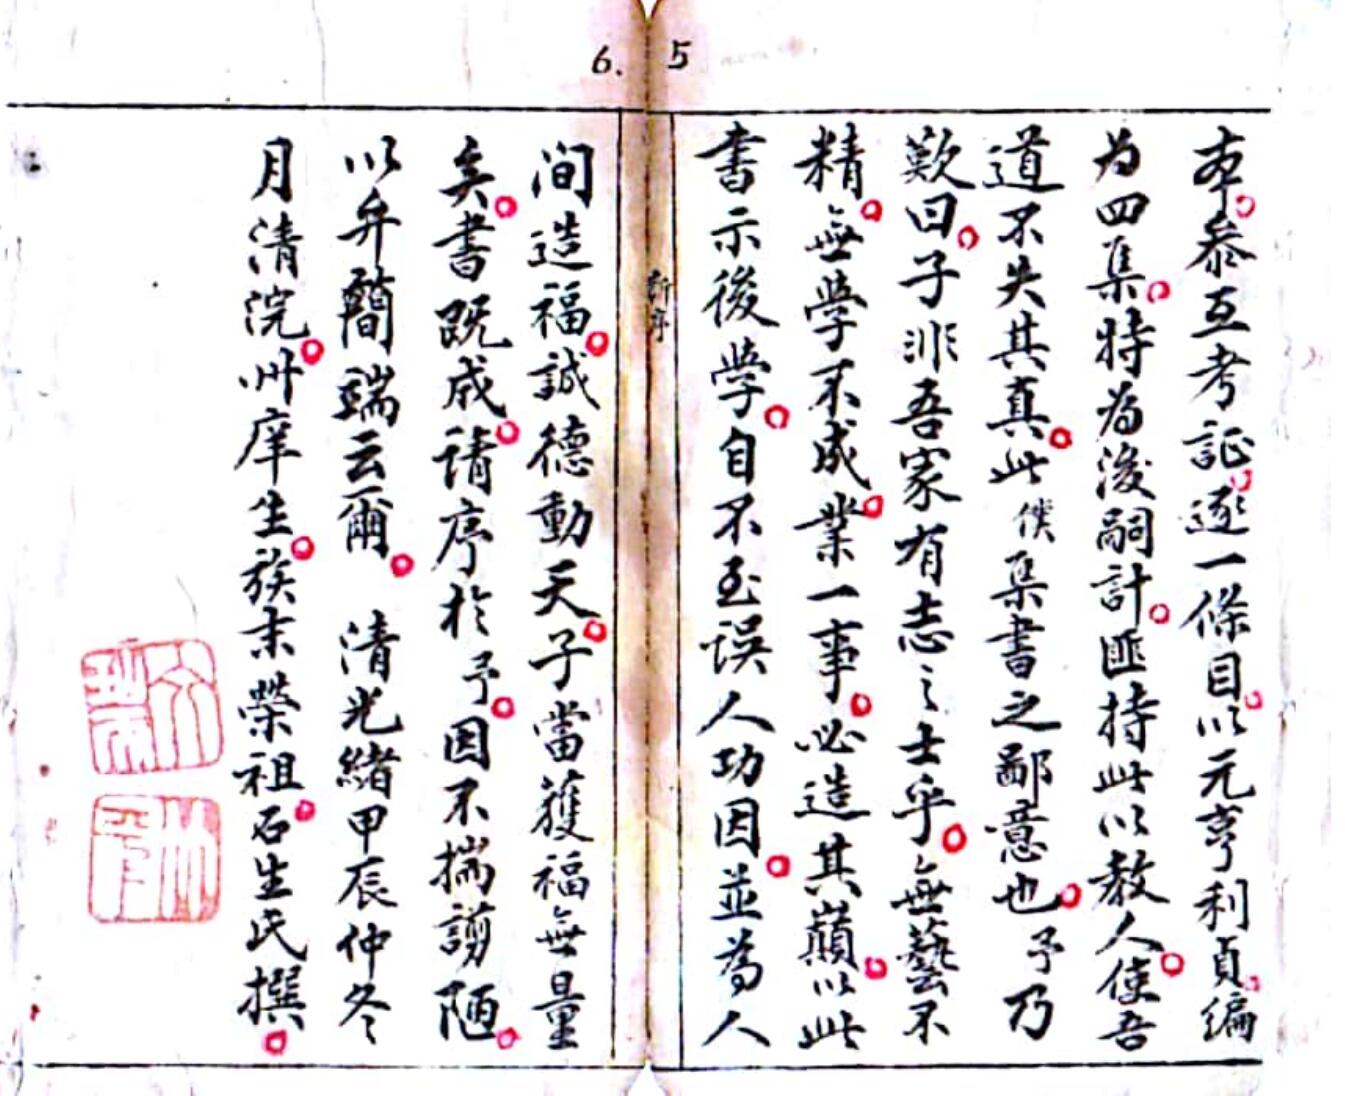 5
本參互考証逐一條目以元亨利貞編
為四集特為後嗣計匪持此以教人使吾
道不失其真此僕集書之鄙意也予乃
歎曰子非吾家有志之士乎無藝不
精無學不成業一事必造其巔以此
書示後學自不至误人功因並為人
新序
6.
间造福誠德動天子當獲福無量
矣書既成请序於予因不揣謭陋
以弁簡端云爾 清光緒甲辰仲冬
月清浣州庠生族末榮祖石生氏撰